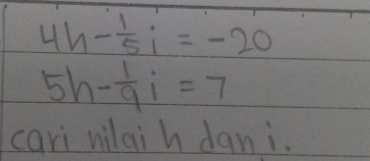 4h - \frac{1}{5} i = -20
5h - \frac{1}{9} i = 7
cari nilai h dan i.